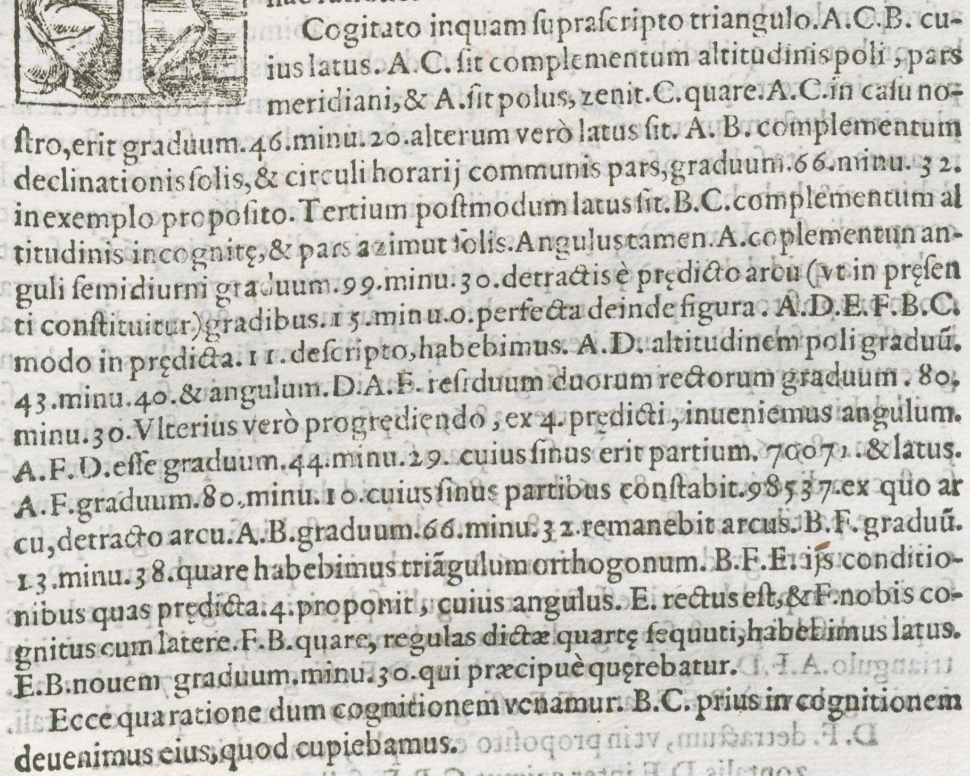 Cogitato inquam ſupraſcripto triangulo.A.C.B. cu-
ius latus. A.C. ſit complementum altitudinis poli, pars
meridiani,& A.ſit polus, zenit.C.quare.A.C.in caſu no-
ſtro,erit graduum.46.minu.20.alterum verò latus ſit. A. B. complementum
declinationis ſolis,& circuli horarij communis pars,graduum.66.minu. 32.
in exemplo propoſito. Tertium poſtmodum latus ſit.B.C.complementum al
titudinis incognitę,& pars azimut ſolis.Angulus tamen.A.coplementun an-
guli ſemidiurni graduum.99.minu.30.detractis è prędicto arcu (vt in pręſen
ti conſtituitur)gradibus.15.minu.0.perfecta deinde figura. A.D.E.F.B.C.
modo in prędicta.11.deſcripto,habebimus. A.D. altitudinem poli graduū.
43.minu.40.& angulum.D.A.F. reſiduum duorum rectorum graduum. 80.
minu.30.Vlterius verò progrediendo, ex 4. prędicti, inueniemus angulum.
A.F.D.eſſe graduum.44.minu.29. cuius ſinus erit partium. 70071.&latus.
A.F.graduum.80.minu.10.cuius ſinus partibus conſtabit.98537.ex quo ar
cu,detracto arcu.A.B.graduum.66.minu.32.remanebit arcus.B.F.graduū.
13.minu.38.quare habebimus triãgulum orthogonum. B.F.E.ijs conditio-
nibus quas prędicta.4.proponit, cuius angulus. E. rectus eſt,&F.nobis co-
gnitus cum latere.F.B.quare, regulas dictæ quartę ſequuti,habebimus latus.
E.B.nouem graduum.minu.30.qui præcipuè quęrebatur.
Ecce qua ratione dum cognitionem venamur. B.C. prius in cognitionem
deuenimus eius,quod cupiebamus.